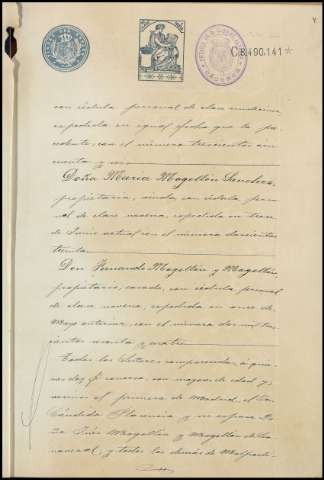 C.8,490,141*
con cédula personal de clase
expedida en igual fecha que la pre-
cedente, con el número trescientos cin-
cuenta y uno
Doña María Magallón Sanchez,
propietaria, viuda, con cédula perso-
nal de clase novena, expedida en trece
de Junio actual con el número doscientos
treinta
Don Fernando Magallón y Magallón
propietario, casado, con cédula personal
de clase novena, expedida en once de
Mayo anterior, con el número dos mil tres-
cientos cuenta y cuatro
Todos los Señores comparecientes, á quie-
nes doy fé conozco, son mayores de edad y
vecinos el primero de Madrid, el Don
Cándido Plasencia y su esposa Do-
ña Inés Magallón y Magallón de
y todos los demás de Malparti-